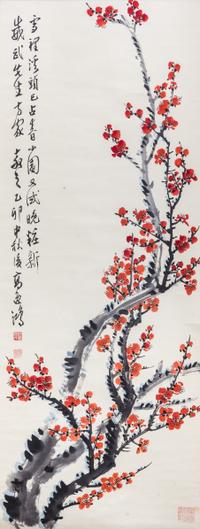 雪裡溪頭已占春小園又試晚粧新
武先生方家教之乙卯中秋後高逸鴻